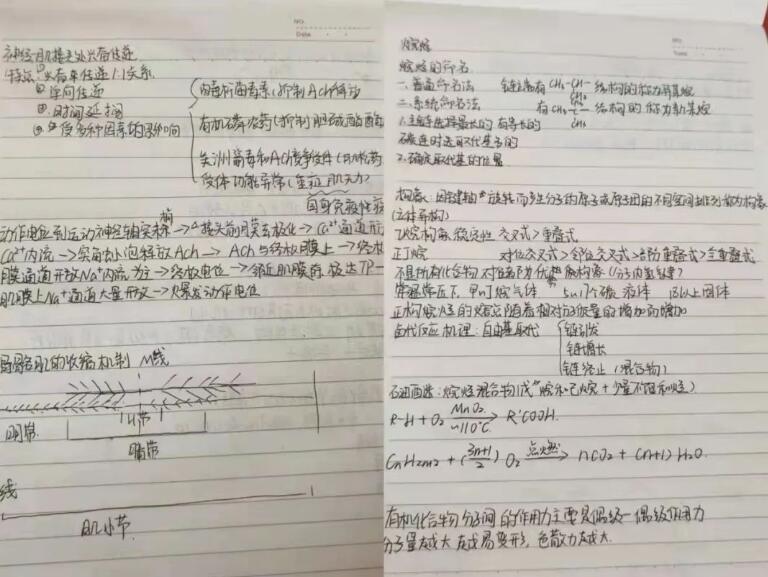 神经肌接头处兴奋传递
特点 ①兴奋传递 1:1关系
②单向传递
③时间延搁
④易受多种因素的影响
肉毒杆菌毒素(抑制ACh释放)
有机磷农药(抑制胆碱酯酶
美洲箭毒和ACh竞争受体(肌松药
受体功能异常(重症肌无力)
自身免疫性疾
动作电位到运动神经轴突末梢→接头前膜去极化→Ca²⁺通道开
Ca²⁺内流→突触小泡释放ACh→ACh与终板膜上→终板
膜通道开放Na⁺内流为主→终板电位→邻近肌膜
肌膜上Na⁺通道大量开放→爆发动作电位
骨骼肌的收缩机制 M线
明带
H带
暗带
线
肌小节
NO.
Date
烷烃
烷烃的命名
一.普通命名法 链端有CH₃-CH- 结构的称为异某烷
CH₃
二.系统命名法 有CH₃-C- 结构的称为新某烷
CH₃
1.主链选择最长的 有等长的
碳链时选取代基多的
2.确定取代基的位置
构象:因绕单键旋转而产生分子的原子或原子团的不同空间排列称为构象
(立体异构)
乙烷构象稳定性 交叉式>重叠式
正丁烷 对位交叉式>邻位交叉式>部分重叠式>全重叠式
不是所有化合物 对位都为优势构象(分子内氢键)
常温常压下,甲~丁烷气体 5~17个碳 液体 18以上固体
正构烷烃的熔沸点随着相对分子质量的增加而增加
卤代反应机理:自由基取代
链引发
链增长
链终止(混合物)
R-H + O₂ MnO₂ ~110°C → R'COOH
CnH2n+2 + (3n+1/2) O₂ 点燃 → nCO₂ + (n+1)H₂O
有机化合物分子间的作用力主要是偶极-偶极作用力
分子量越大 越易变形,色散力越大